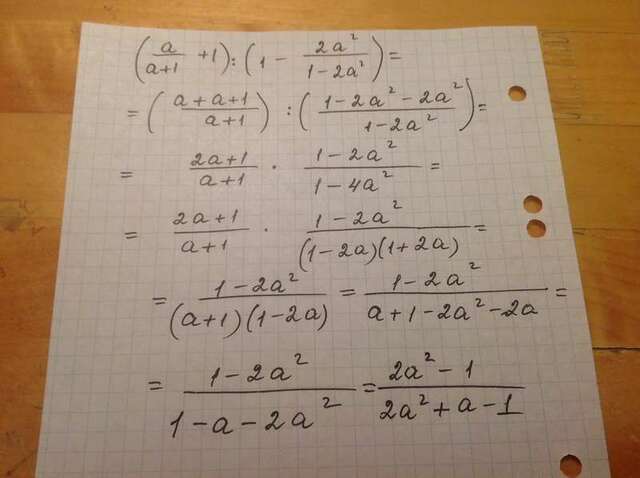 (a/(a+1) + 1) : (1 - 2a²/(1-2a²)) =
= ((a+a+1)/(a+1)) : ((1-2a²-2a²)/(1-2a²)) =
= (2a+1)/(a+1) · (1-2a²)/(1-4a²) =
= (2a+1)/(a+1) · (1-2a²)/((1-2a)(1+2a)) =
= (1-2a²)/((a+1)(1-2a)) = (1-2a²)/(a+1-2a²-2a) =
= (1-2a²)/(1-a-2a²) = (2a²-1)/(2a²+a-1)